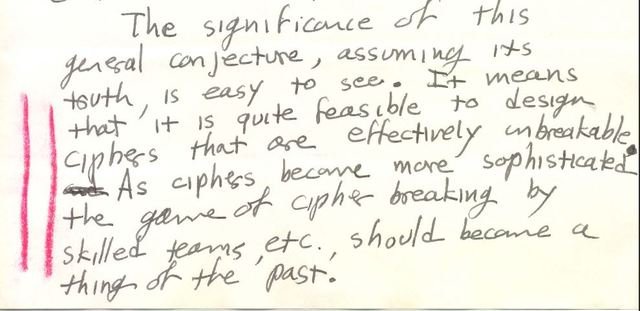 The significance of this
general conjecture, assuming its
truth, is easy to see. It means
that it is quite feasible to design
ciphers that are effectively unbreakable.
As ciphers become more sophisticated
the game of cipher breaking by
skilled teams, etc., should become a
thing of the past.